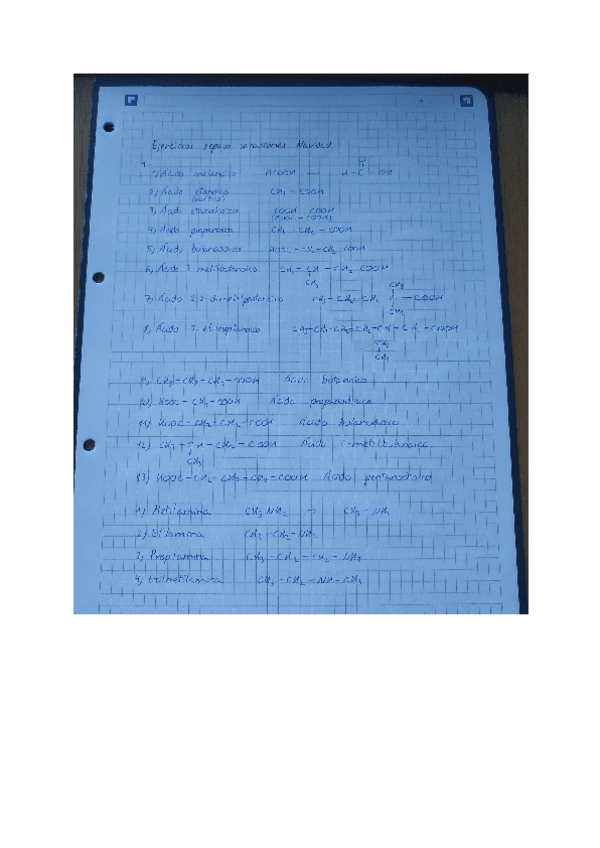 Ejercicios repaso vacaciones Navidad
1) Ácido metanoico HCOOH → H-C-OH
2) Ácido etanoico CH3-COOH
(acético)
3) Ácido etanodioico COOH-COOH
(HOOC-COOH)
4) Ácido propanoico CH3-CH2-COOH
5) Ácido butanodioico HOOC-CH2-CH2-COOH
6) Ácido 3-metilbutanoico CH3-CH-CH2-COOH
CH3
CH3
7) Ácido 2,2-dimetilpentanoico CH3-CH2-CH2-C-COOH
CH3
8) Ácido 3-etilheptanoico CH3-CH2-CH2-CH2-CH-CH2-COOH
CH2
CH3
9) CH3-CH2-CH2-COOH Ácido butanoico
10) HOOC-CH2-COOH Ácido propanodioico
11) HOOC-CH2-CH2-COOH Ácido butanodioico
12) CH3-CH-CH2-COOH Ácido 3-metilbutanoico
CH3
13) HOOC-CH2-CH2-CH2-COOH Ácido pentanodioico
1) Metilamina CH3NH2 → CH3-NH2
2) Etilamina CH3-CH2-NH2
3) Propilamina CH3-CH2-CH2-NH2
4) Etilmetilamina CH3-CH2-NH-CH3